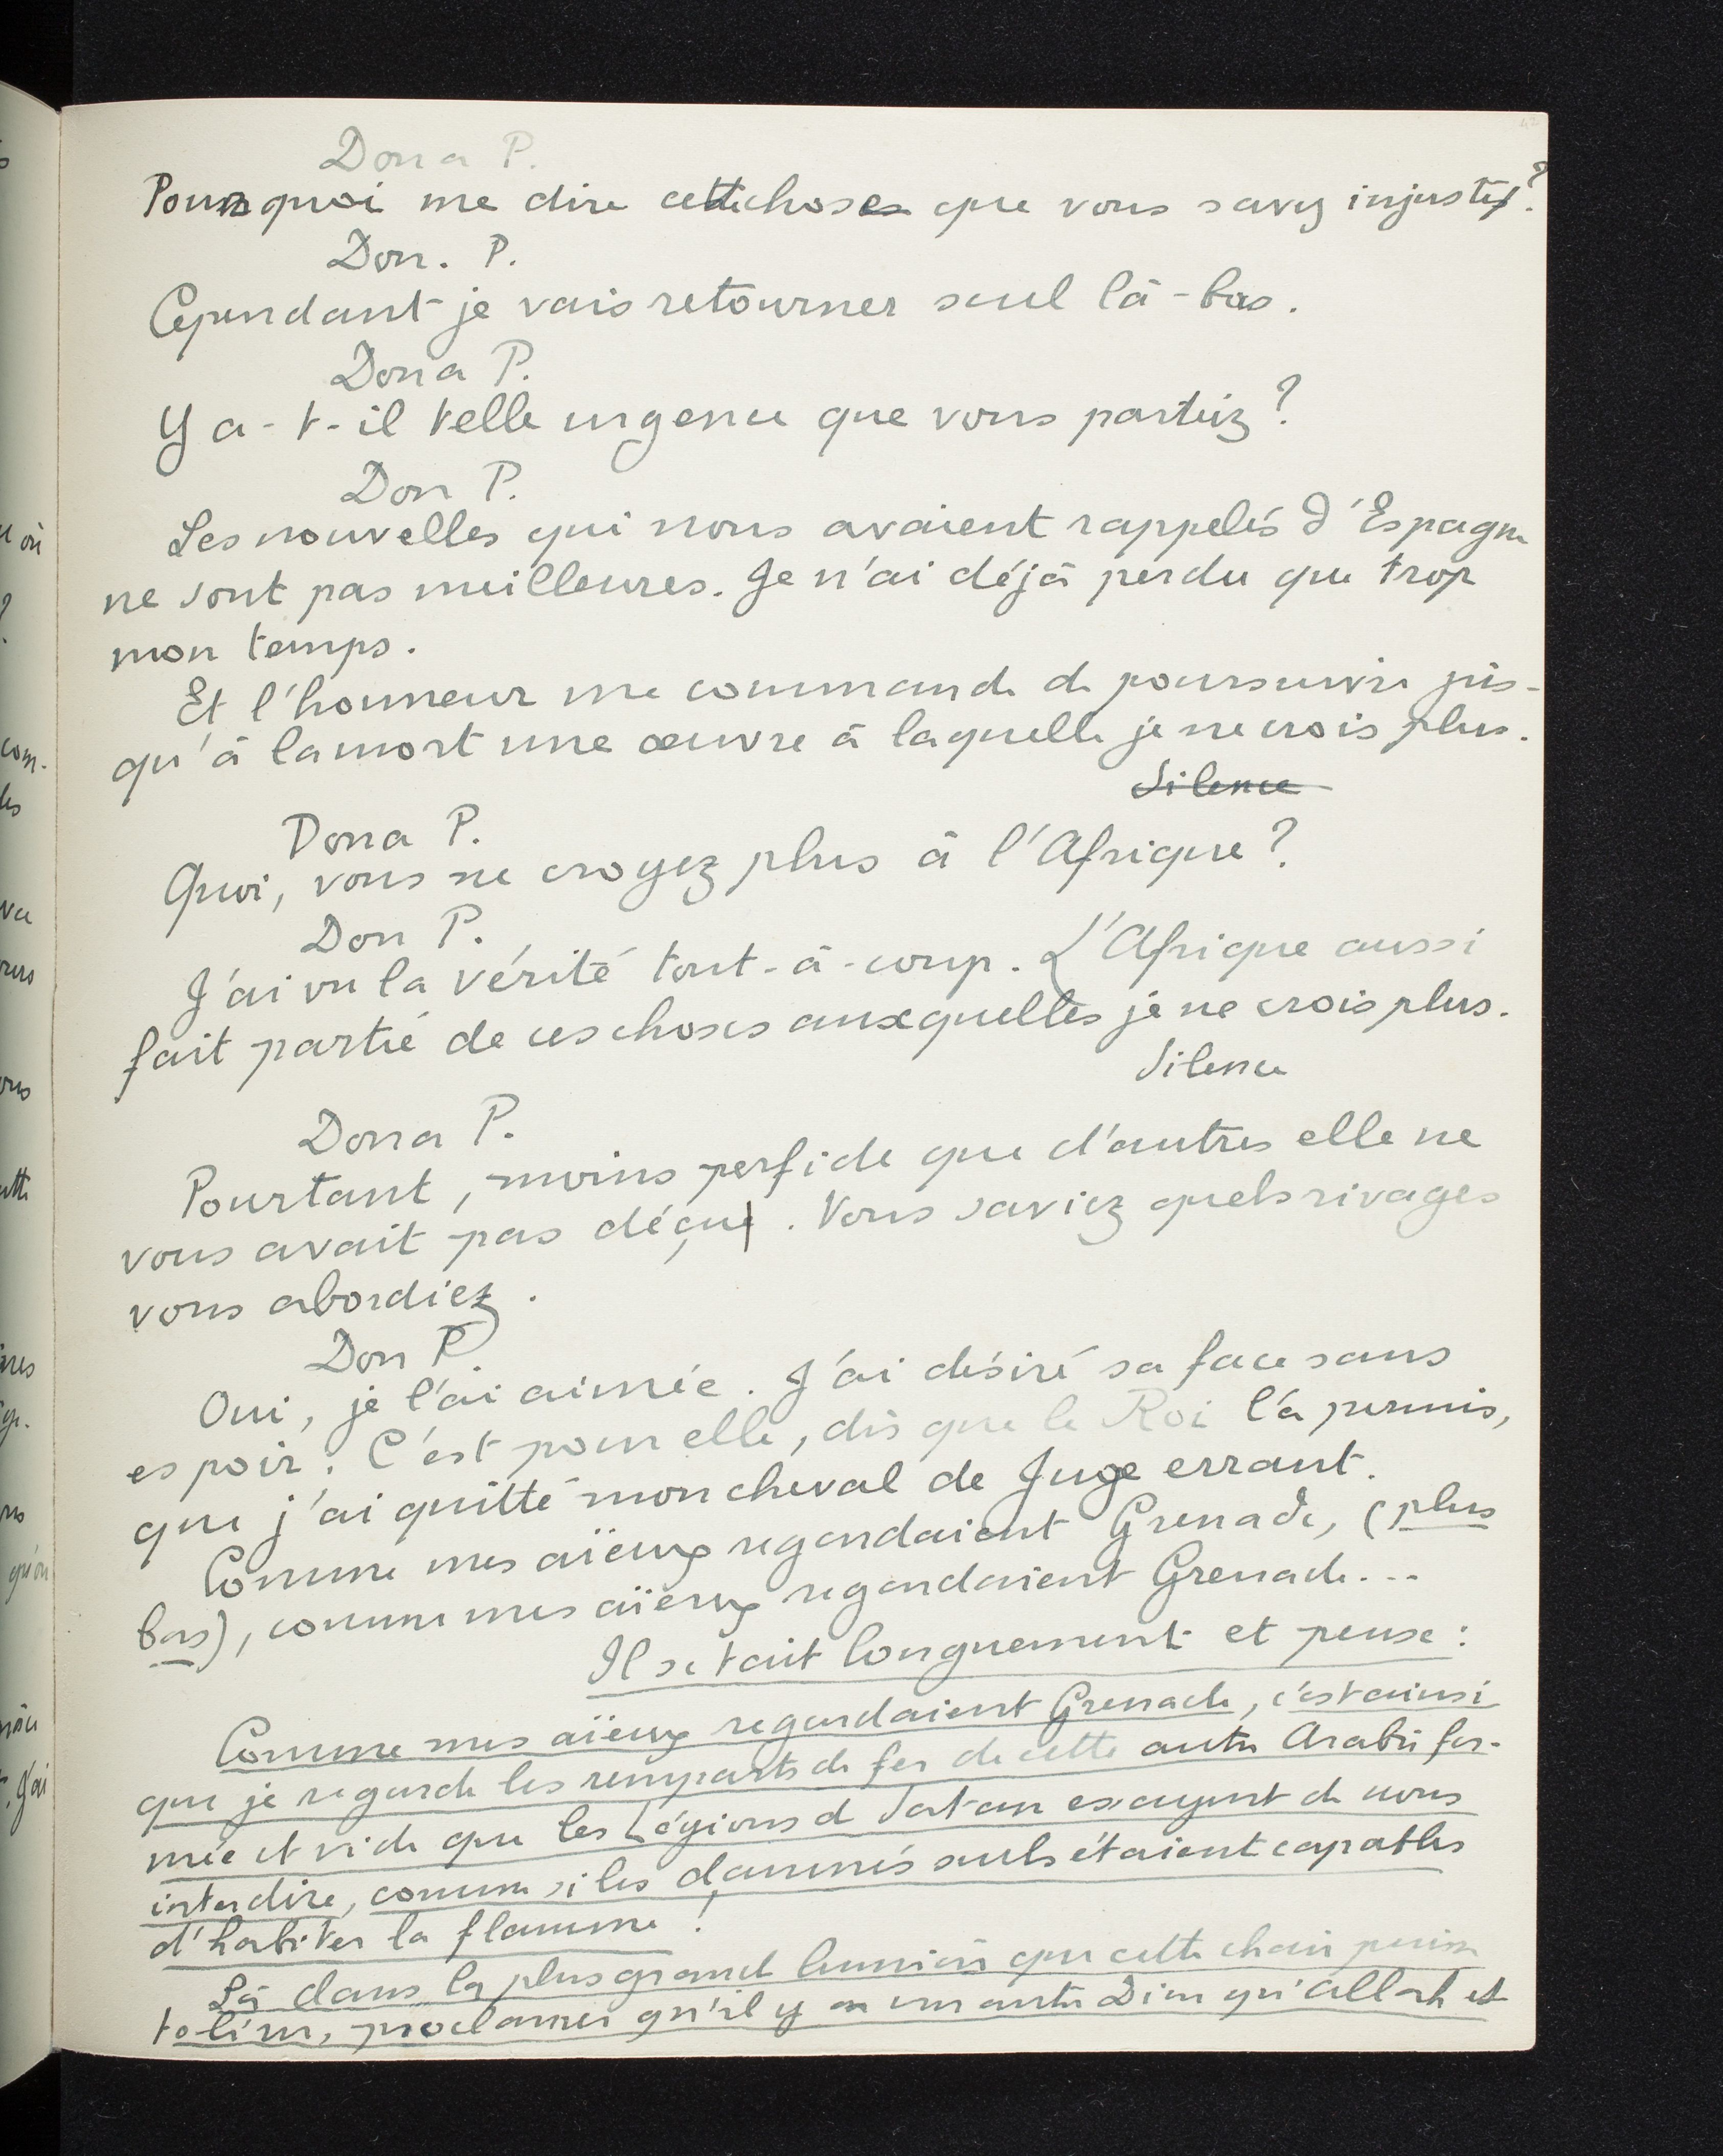 Dona P.
Pourquoi me dire cette chose que vous savez injuste?
Don. P.
Cependant je vais retourner seul là-bas.
Dona P.
Y a-t-il telle urgence que vous partiez?
Don P.
Les nouvelles qui nous avaient rappelés d'Espagne
ne sont pas meilleures. Je n'ai déjà perdu que trop
mon temps.
Et l'honneur me commande de poursuivre jus-
qu'à la mort une œuvre à laquelle je ne crois plus.
Silence
Dona P.
Quoi, vous ne croyez plus à l'Afrique?
Don P.
J'ai vu la vérité tout-à-coup. L'Afrique aussi
fait partie de ces choses auxquelles je ne crois plus.
Silence
Dona P.
Pourtant, moins perfide que d'autres elle ne
vous avait pas déçu. Vous saviez quels rivages
vous abordiez.
Don P.
Oui, je l'ai aimée. J'ai désiré sa face sans
espoir. C'est pour elle, dès que le Roi l'a permis,
que j'ai quitté mon cheval de Juge errant.
Comme mes aïeux regardaient Grenade, (plus
bas), comme mes aïeux regardaient Grenade...
Il se tait longuement et pense:
Comme mes aïeux regardaient Grenade, c'est ainsi
que je regarde les remparts de fer de cette autre Arabie fer-
mée et vide que les Légions d Satan essayent de nous
interdire, comme si les damnés seuls étaient capables
d'habiter la flamme!
Là dans la plus grande lumière que cette chair puisse
tolérer, proclamer qu'il y a un autre Dieu qu'Allah et